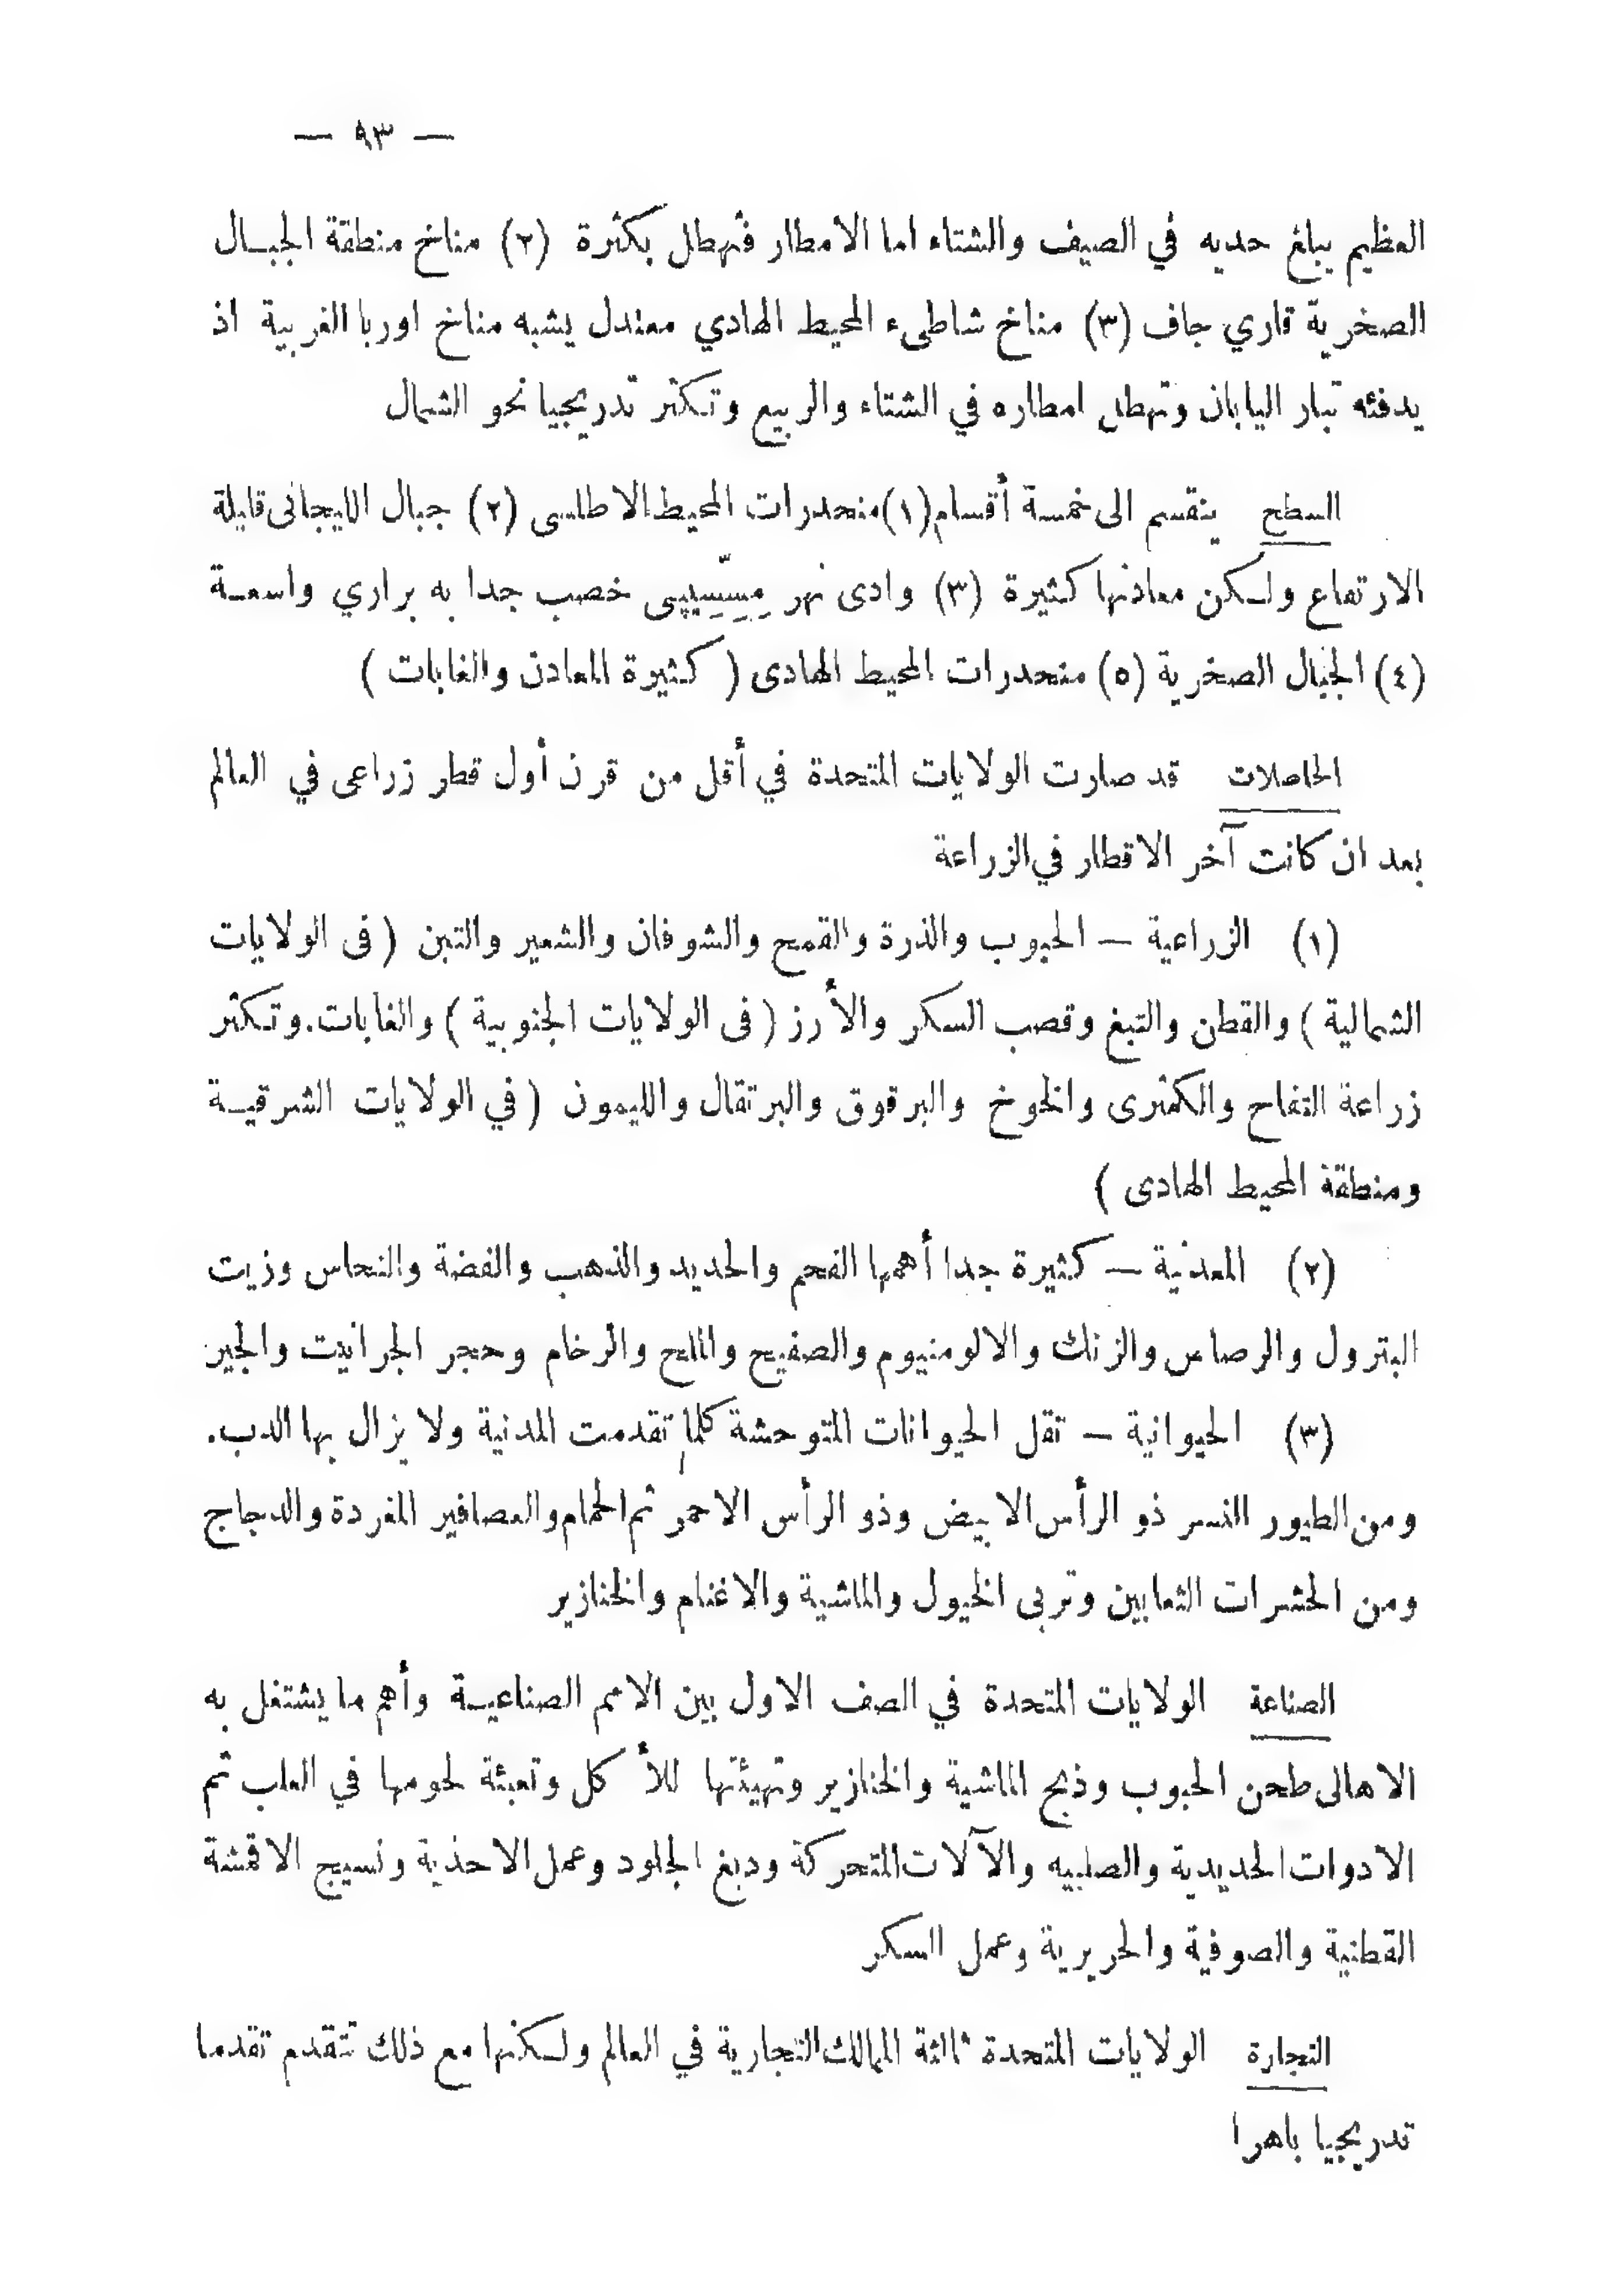 — ٩٣ —
العظيم يبلغ حديه في الصيف والشتاء اما الامطار فتهطل بكثرة (٢) مناخ منطقة الجبال
الصخرية قاري جاف (٣) مناخ شاطىء المحيط الهادي معتدل يشبه مناخ اوربا الغربية اذ
يدفئه تيار اليابان وتهطل امطاره في الشتاء والربيع وتكثر تدريجيا نحو الشمال
السطح ينقسم الى خمسة أقسام (١) منحدرات المحيط الاطلسى (٢) جبال الليجانى قليلة
الارتفاع ولكن معادنها كثيرة (٣) وادى نهر مِسِّسِيپى خصب جدا به براري واسعة
(٤) الجبال الصخرية (٥) منحدرات المحيط الهادى ( كثيرة المعادن والغابات )
الحاصلات قد صارت الولايات المتحدة في أقل من قرن أول قطر زراعى في العالم
بعد ان كانت آخر الاقطار في الزراعة
(١) الزراعية — الحبوب والذرة والقمح والشوفان والشعير والتبن ( فى الولايات
الشمالية ) والقطن والتبغ وقصب السكر والأرز ( فى الولايات الجنوبية ) والغابات. وتكثر
زراعة التفاح والكمثرى والخوخ والبرقوق والبرتقال والليمون ( في الولايات الشرقية
ومنطقة المحيط الهادى )
(٢) المعدنية — كثيرة جدا أهمها الفحم والحديد والذهب والفضة والنحاس وزيت
البترول والرصاص والزنك والالومنيوم والصفيح والملح والرخام وحجر الجرانيت والجير
(٣) الحيوانية — تقل الحيوانات المتوحشة كلما تقدمت المدنية ولا يزال بها الدب.
ومن الطيور النسر ذو الرأس الابيض وذو الرأس الاحمر ثم الحمام والعصافير المغردة والدجاج
ومن الحشرات الثعابين وتربى الخيول والماشية والاغنام والخنازير
الصناعة الولايات المتحدة في الصف الاول بين الامم الصناعية وأهم ما يشتغل به
الاهالى طحن الحبوب وذبح الماشية والخنازير وتهيئتها للأ كل وتعبئة لحومها في العلب ثم
الادوات الحديدية والصلبيه والآلات المتحركة ودبغ الجلود وعمل الاحذية ونسيج الاقمشة
القطنية والصوفية والحريرية وعمل السكر
التجارة الولايات المتحدة ثالثة الممالك التجارية في العالم ولكنها مع ذلك تتقدم تقدما
تدريجيا باهرا